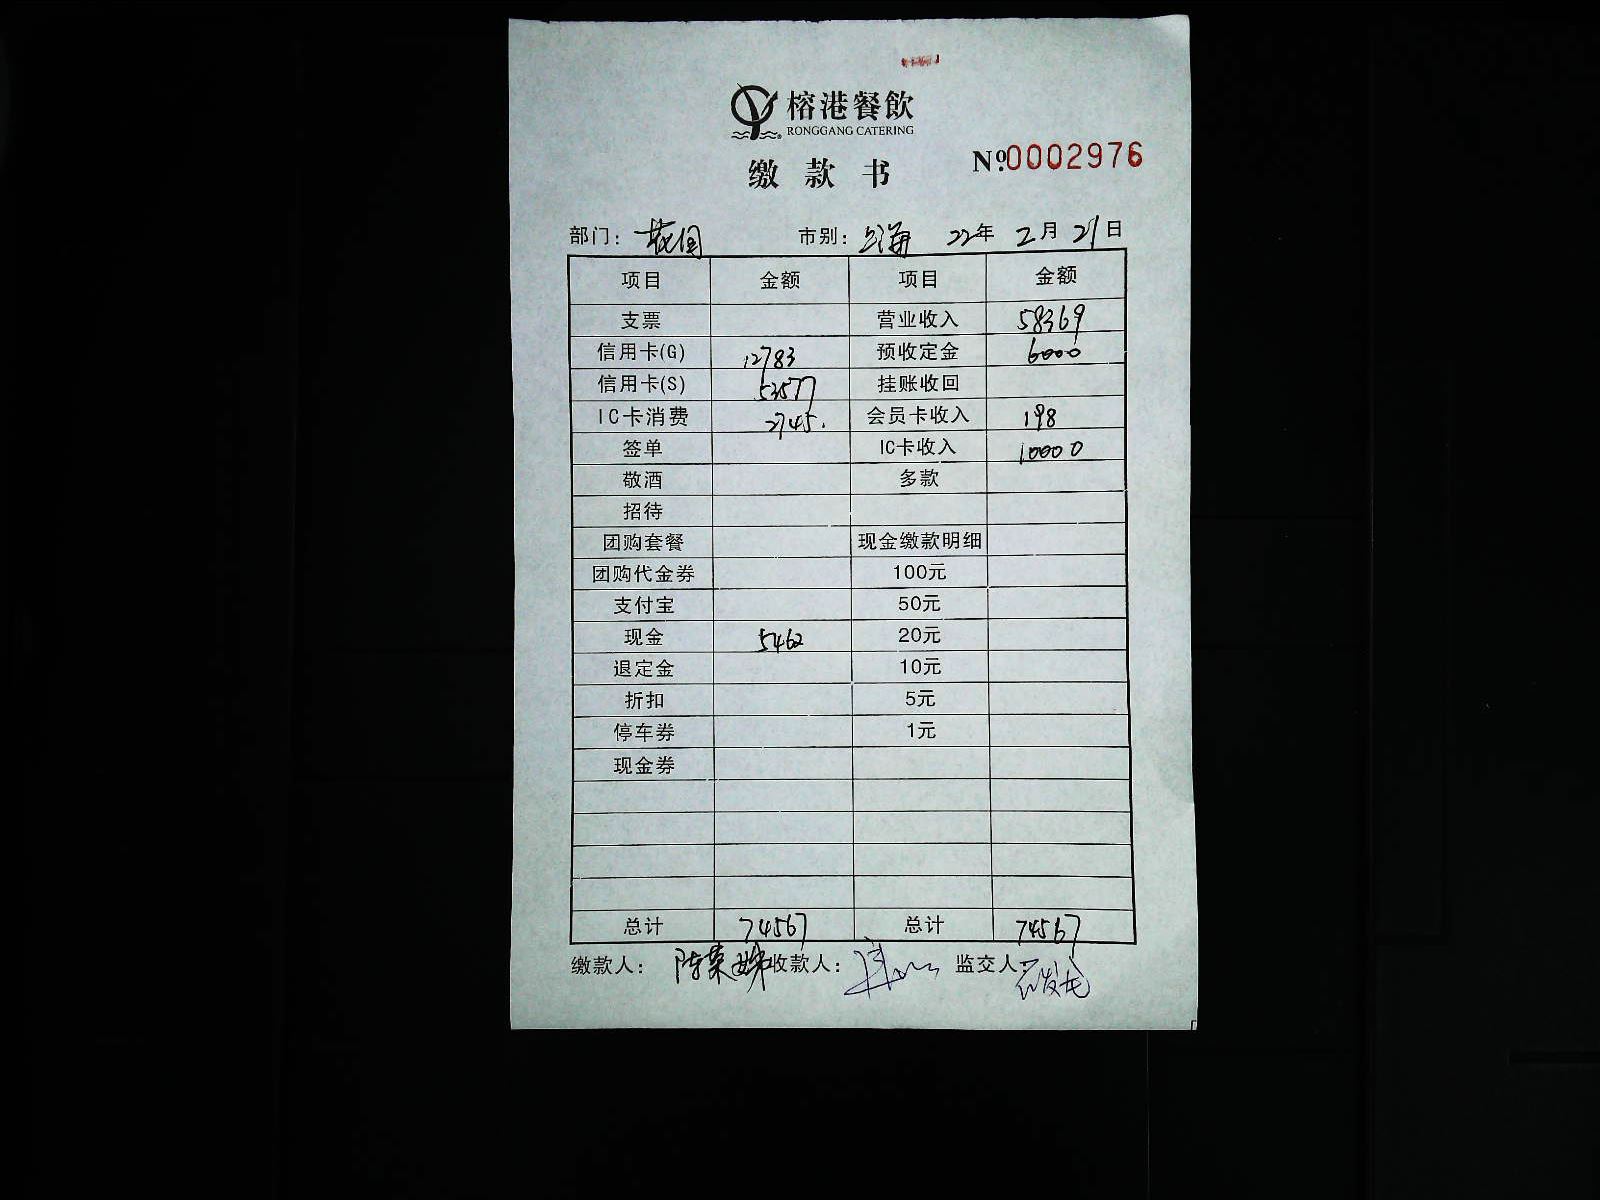 榕港餐飲
RONGGANG CATERING
缴款书 Nº.0002976
部门: 市别: 上海 22年 2月 21日
项目 金额 项目 金额
支票 营业收入 58369
信用卡(G) 12783 预收定金 6000
信用卡(S) 53577 挂账收回
IC卡消费 2745. 会员卡收入 198
签单 IC卡收入 10000
敬酒 多款
招待
团购套餐 现金缴款明细
团购代金券 100元
支付宝 50元
现金 5462 20元
退定金 10元
折扣 5元
停车券 1元
现金券
总计 74567 总计 74567
缴款人: 收款人: 监交人: